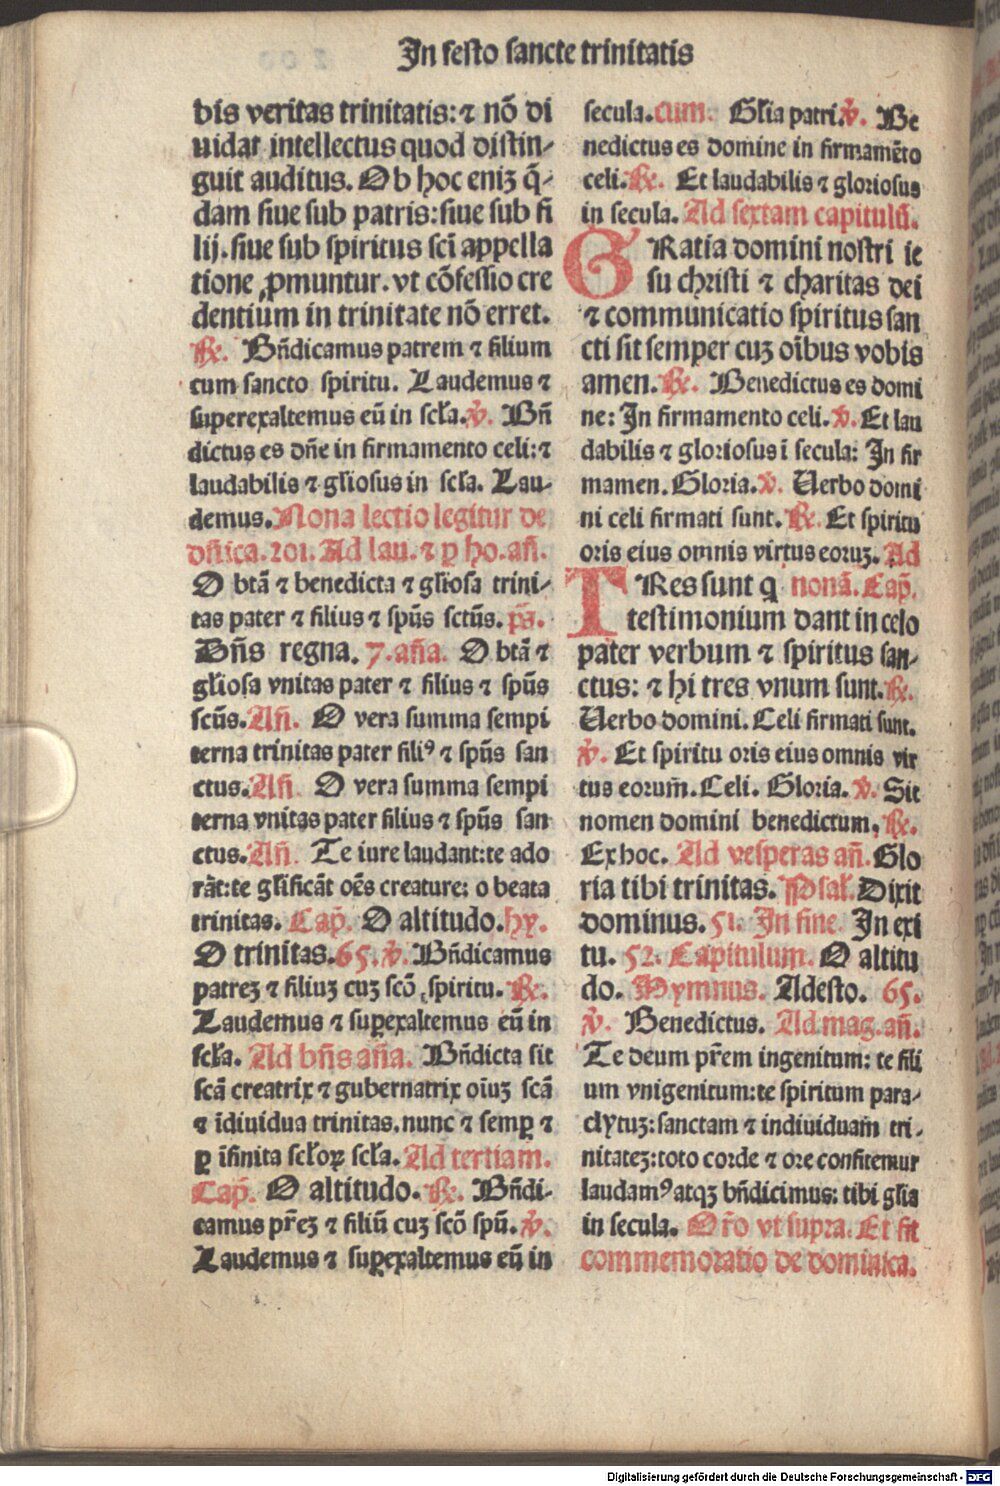 In festo sancte trinitatis
bis veritas trinitatis: ⁊ nō di
uidat intellectus quod distin-
guit auditus. Ob hoc eniʒ q̄-
dam siue sub patris: siue sub fi
lij. siue sub spiritus scī appella
tione ꝓmuntur. vt cōfessio cre
dentium in trinitate nō erret.
℟. Bn̄dicamus patrem ⁊ filium
cum sancto spiritu. Laudemus ⁊
superexaltemus eū in scl̄a. ℣. Bn̄
dictus es dn̄e in firmamento celi: ⁊
laudabilis ⁊ gl̄iosus in scl̄a. Lau-
demus. Nona lectio legitur de
dn̄ica. 201. Ad lau. ⁊ ꝑ ho. an̄.
O btā ⁊ benedicta ⁊ gl̄iosa trini-
tas pater ⁊ filius ⁊ spūs sctūs. ps̄.
Dn̄s regna. 7. an̄a. O btā ⁊
gl̄iosa vnitas pater ⁊ filius ⁊ spūs
scūs. An̄. O vera summa sempi
terna trinitas pater filiꝰ ⁊ spūs san
ctus. An̄. O vera summa sempi
terna vnitas pater filius ⁊ spūs san
ctus. An̄. Te iure laudant: te ado
rāt: te gl̄ificāt oēs creature: o beata
trinitas. Cap̄. O altitudo. hy.
O trinitas. 65. ℣. Bn̄dicamus
patreʒ ⁊ filiuʒ cuʒ scō spiritu. ℟.
Laudemus ⁊ suꝑexaltemus eū in
scl̄a. Ad bn̄s an̄a. Bn̄dicta sit
scā creatrix ⁊ gubernatrix oīuʒ scā
⁊ īdiuidua trinitas. nunc ⁊ semꝑ ⁊
ꝑ īfinita scl̄oꝝ scl̄a. Ad tertiam.
Cap̄. O altitudo. ℟. Bn̄di-
camus pr̄eʒ ⁊ filiū cuʒ scō spū. ℣.
Laudemus ⁊ suꝑexaltemus eū in
secula. cum. Gl̄ia patri. ℣. Be
nedictus es domine in firmamēto
celi. ℟. Et laudabilis ⁊ gloriosus
in secula. Ad sextam capitulū.
GRatia domini nostri ie
su christi ⁊ charitas dei
⁊ communicatio spiritus san
cti sit semper cuʒ oībus vobis
amen. ℟. Benedictus es domi
ne: In firmamento celi. ℣. Et lau
dabilis ⁊ gloriosus ī secula: In fir
mamen. Gloria. ℣. Uerbo domi
ni celi firmati sunt. ℟. Et spiritu
oris eius omnis virtus eoruʒ. Ad
TRes sunt q nonā. Cap̄.
testimonium dant in celo
pater verbum ⁊ spiritus san-
ctus: ⁊ hi tres vnum sunt. ℟.
Uerbo domini. Celi firmati sunt.
℣. Et spiritu oris eius omnis vir
tus eorum̄. Celi. Gloria. ℣. Sit
nomen domini benedictum. ℟.
Ex hoc. Ad vesperas an̄. Glo
ria tibi trinitas. Psal̄. Dixit
dominus. 51. In fine. In exi
tu. 52. Capitulum. O altitu
do. Hymnus. Adesto. 65.
℣. Benedictus. Ad mag. an̄.
Te deum pr̄em ingenitum: te fili
um vnigenitum: te spiritum para-
clytuʒ: sanctam ⁊ indiuiduam̄ tri-
nitateʒ: toto corde ⁊ ore confitemur
laudamꝰ atqʒ bn̄dicimus: tibi gl̄ia
in secula. Or̄o vt supra. Et fit
commemoratio de dominica.
Digitalisierung gefördert durch die Deutsche Forschungsgemeinschaft - DFG